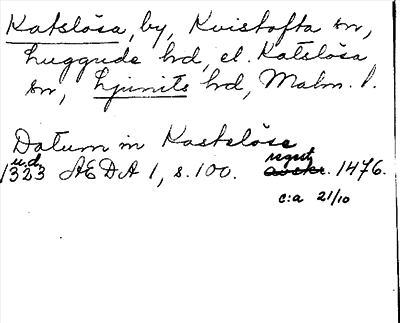 Katslösa, by, Kvistofta sn,
Luggude hd, el. Katslösa
sn, Ljunits hd, Malm. l.
Datum in Kastslöse
u.d.
1323 AEDA 1, s. 100. regest avskr. 1476.
c:a 21/10